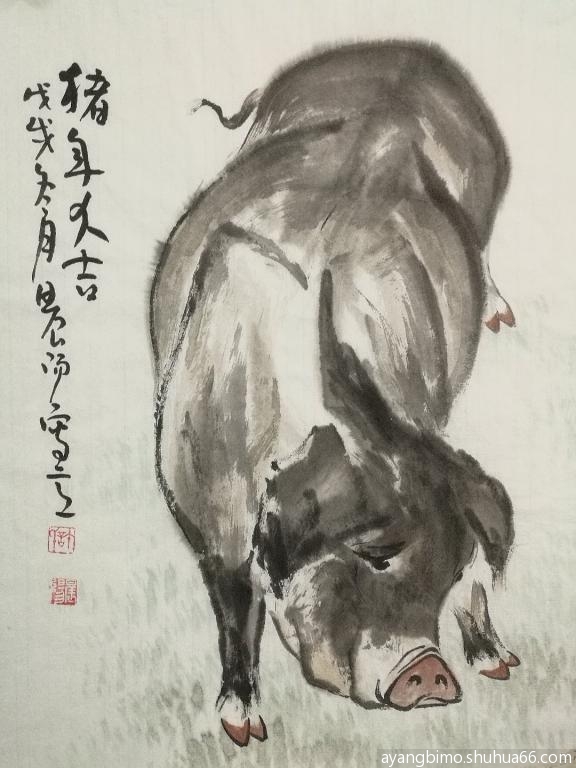 猪年大吉
戊戌冬月晨阳写之
ayangbimo.shuhua66.com